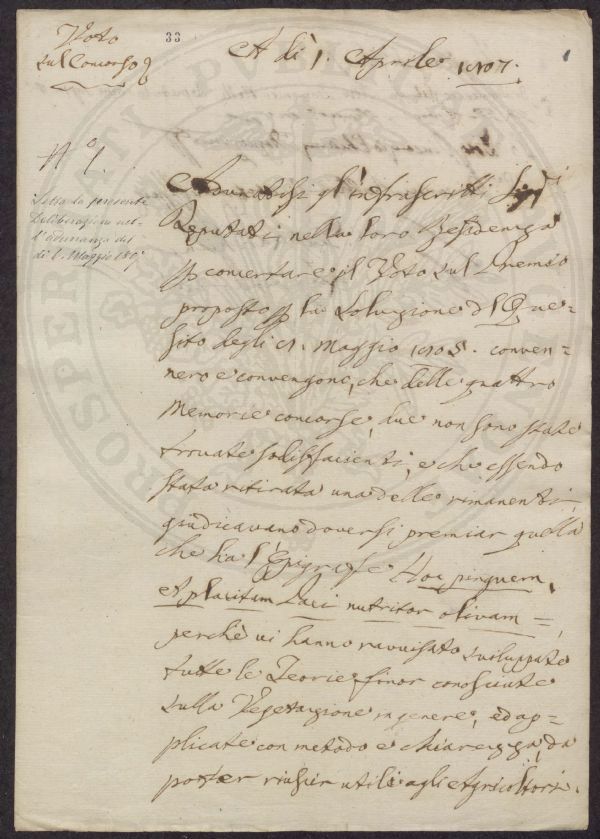 Voto
sul Concorso
33
A dì 1. Aprile 1807.
N.° 1.
Letta la presente
Deliberazione nel-
l'adunanza del
dì 6. Maggio 1807
Adunatisi gl'infrascritti Sig.ri
Deputati nella loro Residenza
p concertare il Voto sul Premio
proposto p la Soluzione dl Que-
sito degli Maggio 1805. conven-
nero e convengono, che delle quattro
Memorie concorse, due non sono state
trovate sodisfacienti, e che essendo
stata ritirata una delle rimanenti,
giudicavano doversi premiar quella
che ha l'Epigrafe Hoc pinguem,
et placitam Paci nutritor olivam=,
perchè vi hanno ravvisato sviluppate
tutte le Teorie finor conosciute
sulla Vegetazione in genere, ed ap-
plicate con metodo e chiarezza, da
poter riuscir utili agli Agricoltori.